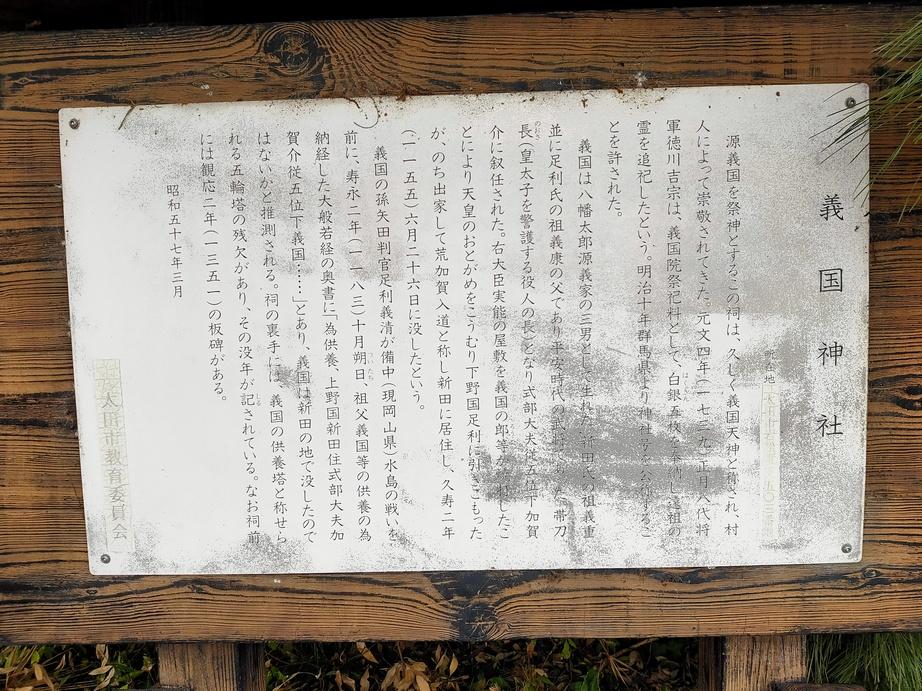 義国神社
所在地
源義国を祭神とするこの祠は、久しく義国天神と称され、村
人によって崇敬されてきた。元文四年(一七三九)正月八代将
軍徳川吉宗は、義国院祭祀料として、白銀五枚を奉納し遠祖の
霊を追祀したという。明治十年群馬県より神社号を公称するこ
とを許された。
義国は八幡太郎源義家の三男として生れた。新田氏の祖義重
並に足利氏の祖義康の父であり平安時代の武将であった。帯刀
長(皇太子を警護する役人の長)となり式部大夫従五位下加賀
介に叙任された。右大臣実能の屋敷を義国の郎等が
とにより天皇のおとがめをこうむり下野国足利に引きこもった
が、のち出家して荒加賀入道と称し新田に居住し、久寿二年
(一一五五)六月二十六日に没したという。
義国の孫矢田判官足利義清が備中(現岡山県)水島の戦いを
前に、寿永二年(一一八三)十月朔日、祖父義国等の供養の為
納経した大般若経の奥書に「為供養、上野国新田住式部大夫加
賀介従五位下義国……」とあり、義国は新田の地で没したので
はないかと推測される。祠の裏手には、義国の供養塔と称せら
れる五輪塔の残欠があり、その没年が記されている。なお祠前
には観応二年(一三五一)の板碑がある。
昭和五十七年三月
太田市教育委員会